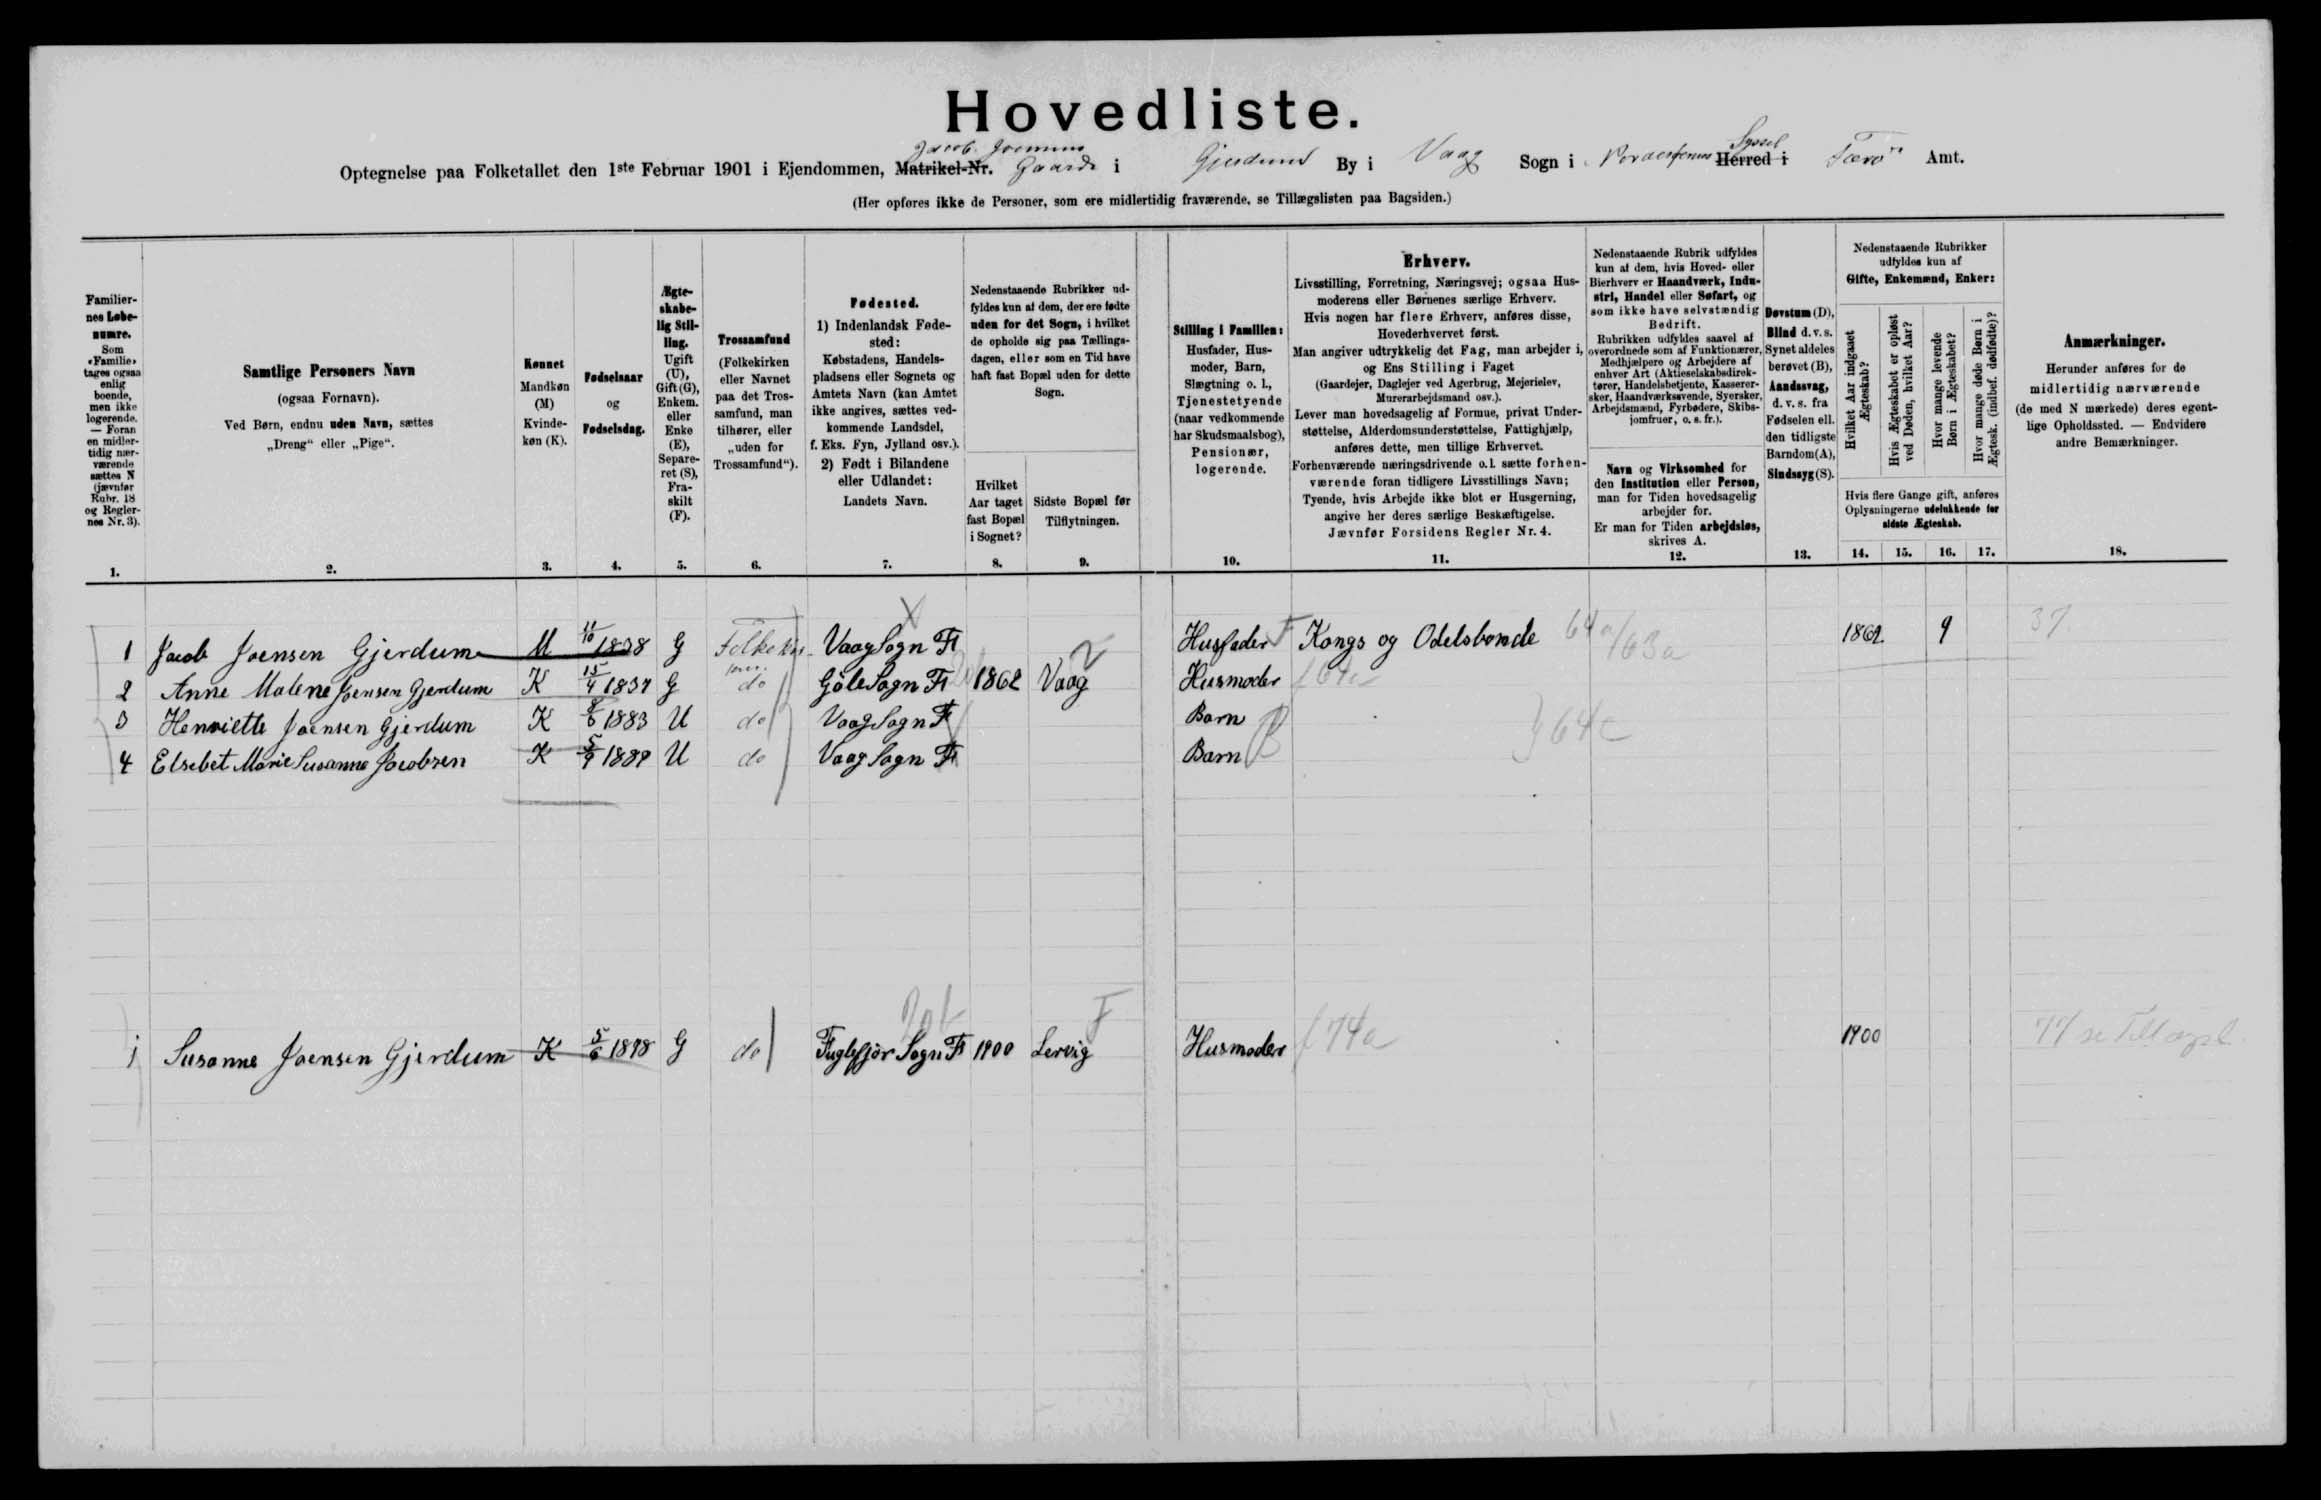 Hovedliste.
Jacob Joensens Syssel
Optegnelse paa Folketallet den 1ste Februar 1901 i Ejendommen, Matrikel-Nr. Gaard i Gjerdum By i Vaag Sogn i Norderøernes Herred i Færø Amt.
(Her opføres ikke de Personer, som ere midlertidig fraværende, se Tillægslisten paa Bagsiden.)
Familiernes Løbenumre. Som «Familie» tages ogsaa enlig boende, men ikke logerende. — Foran en midlertidig nærværende sættes N (jævnfør Rubr. 18 og Reglernes Nr. 3).
Samtlige Personers Navn (ogsaa Fornavn). Ved Børn, endnu uden Navn, sættes „Dreng“ eller „Pige“.
Kønnet Mandkøn (M) Kvindekøn (K).
Fødselsaar og Fødselsdag.
Ægteskabelig Stilling. Ugift (U), Gift (G), Enkem. eller Enke (E), Separeret (S), Fraskilt (F).
Trossamfund (Folkekirken eller Navnet paa det Trossamfund, man tilhører, eller „uden for Trossamfund“).
Fødested. 1) Indenlandsk Fødested: Købstadens, Handelspladsens eller Sognets og Amtets Navn (kan Amtet ikke angives, sættes vedkommende Landsdel, f. Eks. Fyn, Jylland osv.). 2) Født i Bilandene eller Udlandet: Landets Navn.
Nedenstaaende Rubrikker udfyldes kun af dem, der ere fødte uden for det Sogn, i hvilket de opholde sig paa Tællingsdagen, eller som en Tid have haft fast Bopæl uden for dette Sogn.
Hvilket Aar taget fast Bopæl i Sognet?
Sidste Bopæl før Tilflytningen.
Stilling i Familien: Husfader, Husmoder, Barn, Slægtning o. l., Tjenestetyende (naar vedkommende har Skudsmaalsbog), Pensionær, logerende.
Erhverv. Livsstilling, Forretning, Næringsvej; ogsaa Husmoderens eller Børnenes særlige Erhverv. Hvis nogen har flere Erhverv, anføres disse, Hovederhvervet først. Man angiver udtrykkelig det Fag, man arbejder i, og Ens Stilling i Faget (Gaardejer, Daglejer ved Agerbrug, Mejerielev, Murerarbejdsmand osv.). Lever man hovedsagelig af Formue, privat Understøttelse, Alderdomsunderstøttelse, Fattighjælp, anføres dette, men tillige Erhvervet. Forhenværende næringsdrivende o. l. sætte forhenværende foran tidligere Livsstillings Navn; Tyende, hvis Arbejde ikke blot er Husgerning, angive her deres særlige Beskæftigelse. Jævnfør Forsidens Regler Nr. 4.
Nedenstaaende Rubrik udfyldes kun af dem, hvis Hoved- eller Bierhverv er Haandværk, Industri, Handel eller Søfart, og som ikke have selvstændig Bedrift. Rubrikken udfyldes saavel af overordnede som af Funktionærer, Medhjælpere og Arbejdere af enhver Art (Aktieselskabsdirektører, Handelsbetjente, Kasserersker, Haandværkssvende, Syersker, Arbejdsmænd, Fyrbødere, Skibsjomfruer, o. s. fr.).
Navn og Virksomhed for den Institution eller Person, man for Tiden hovedsagelig arbejder for. Er man for Tiden arbejdsløs, skrives A.
Døvstum (D), Blind d. v. s. Synet aldeles berøvet (B), Aandssvag, d. v. s. fra Fødselen ell. den tidligste Barndom (A), Sindssyg (S).
Nedenstaaende Rubrikker udfyldes kun af Gifte, Enkemænd, Enker:
Hvilket Aar indgaaet Ægteskab?
Hvis Ægteskabet er opløst ved Døden, hvilket Aar?
Hvor mange levende Børn i Ægteskabet?
Hvor mange døde Børn i Ægtesk. (indbef. dødfødte)?
Hvis flere Gange gift, anføres Oplysningerne udelukkende for sidste Ægteskab.
Anmærkninger. Herunder anføres for de midlertidig nærværende (de med N mærkede) deres egentlige Opholdssted. — Endvidere andre Bemærkninger.
1. 2. 3. 4. 5. 6. 7. 8. 9. 10. 11. 12. 13. 14. 15. 16. 17. 18.
1 Jacob Joensen Gjerdum M 11/10 1838 G Folkekir Vaag Sogn Fr Husfader F Kongs og Odelsbonde 64a/63a 1862 9 37
2 Anne Malene Joensen Gjerdum K 15/4 1837 G do Göte Sogn Fr 1862 Vaag Husmoder
3 Henriette Joensen Gjerdum K 8/6 1883 U do Vaag Sogn Fr Barn B 64c
4 Elsebet Marie Susanne Jacobsen K 5/9 1889 U do Vaag Sogn Fr Barn
1 Susanne Joensen Gjerdum K 5/6 1878 G do Fuglefjör Sogn Fr 1900 Lervig F Husmoder f 74a 1900 77 se Tillægsl.